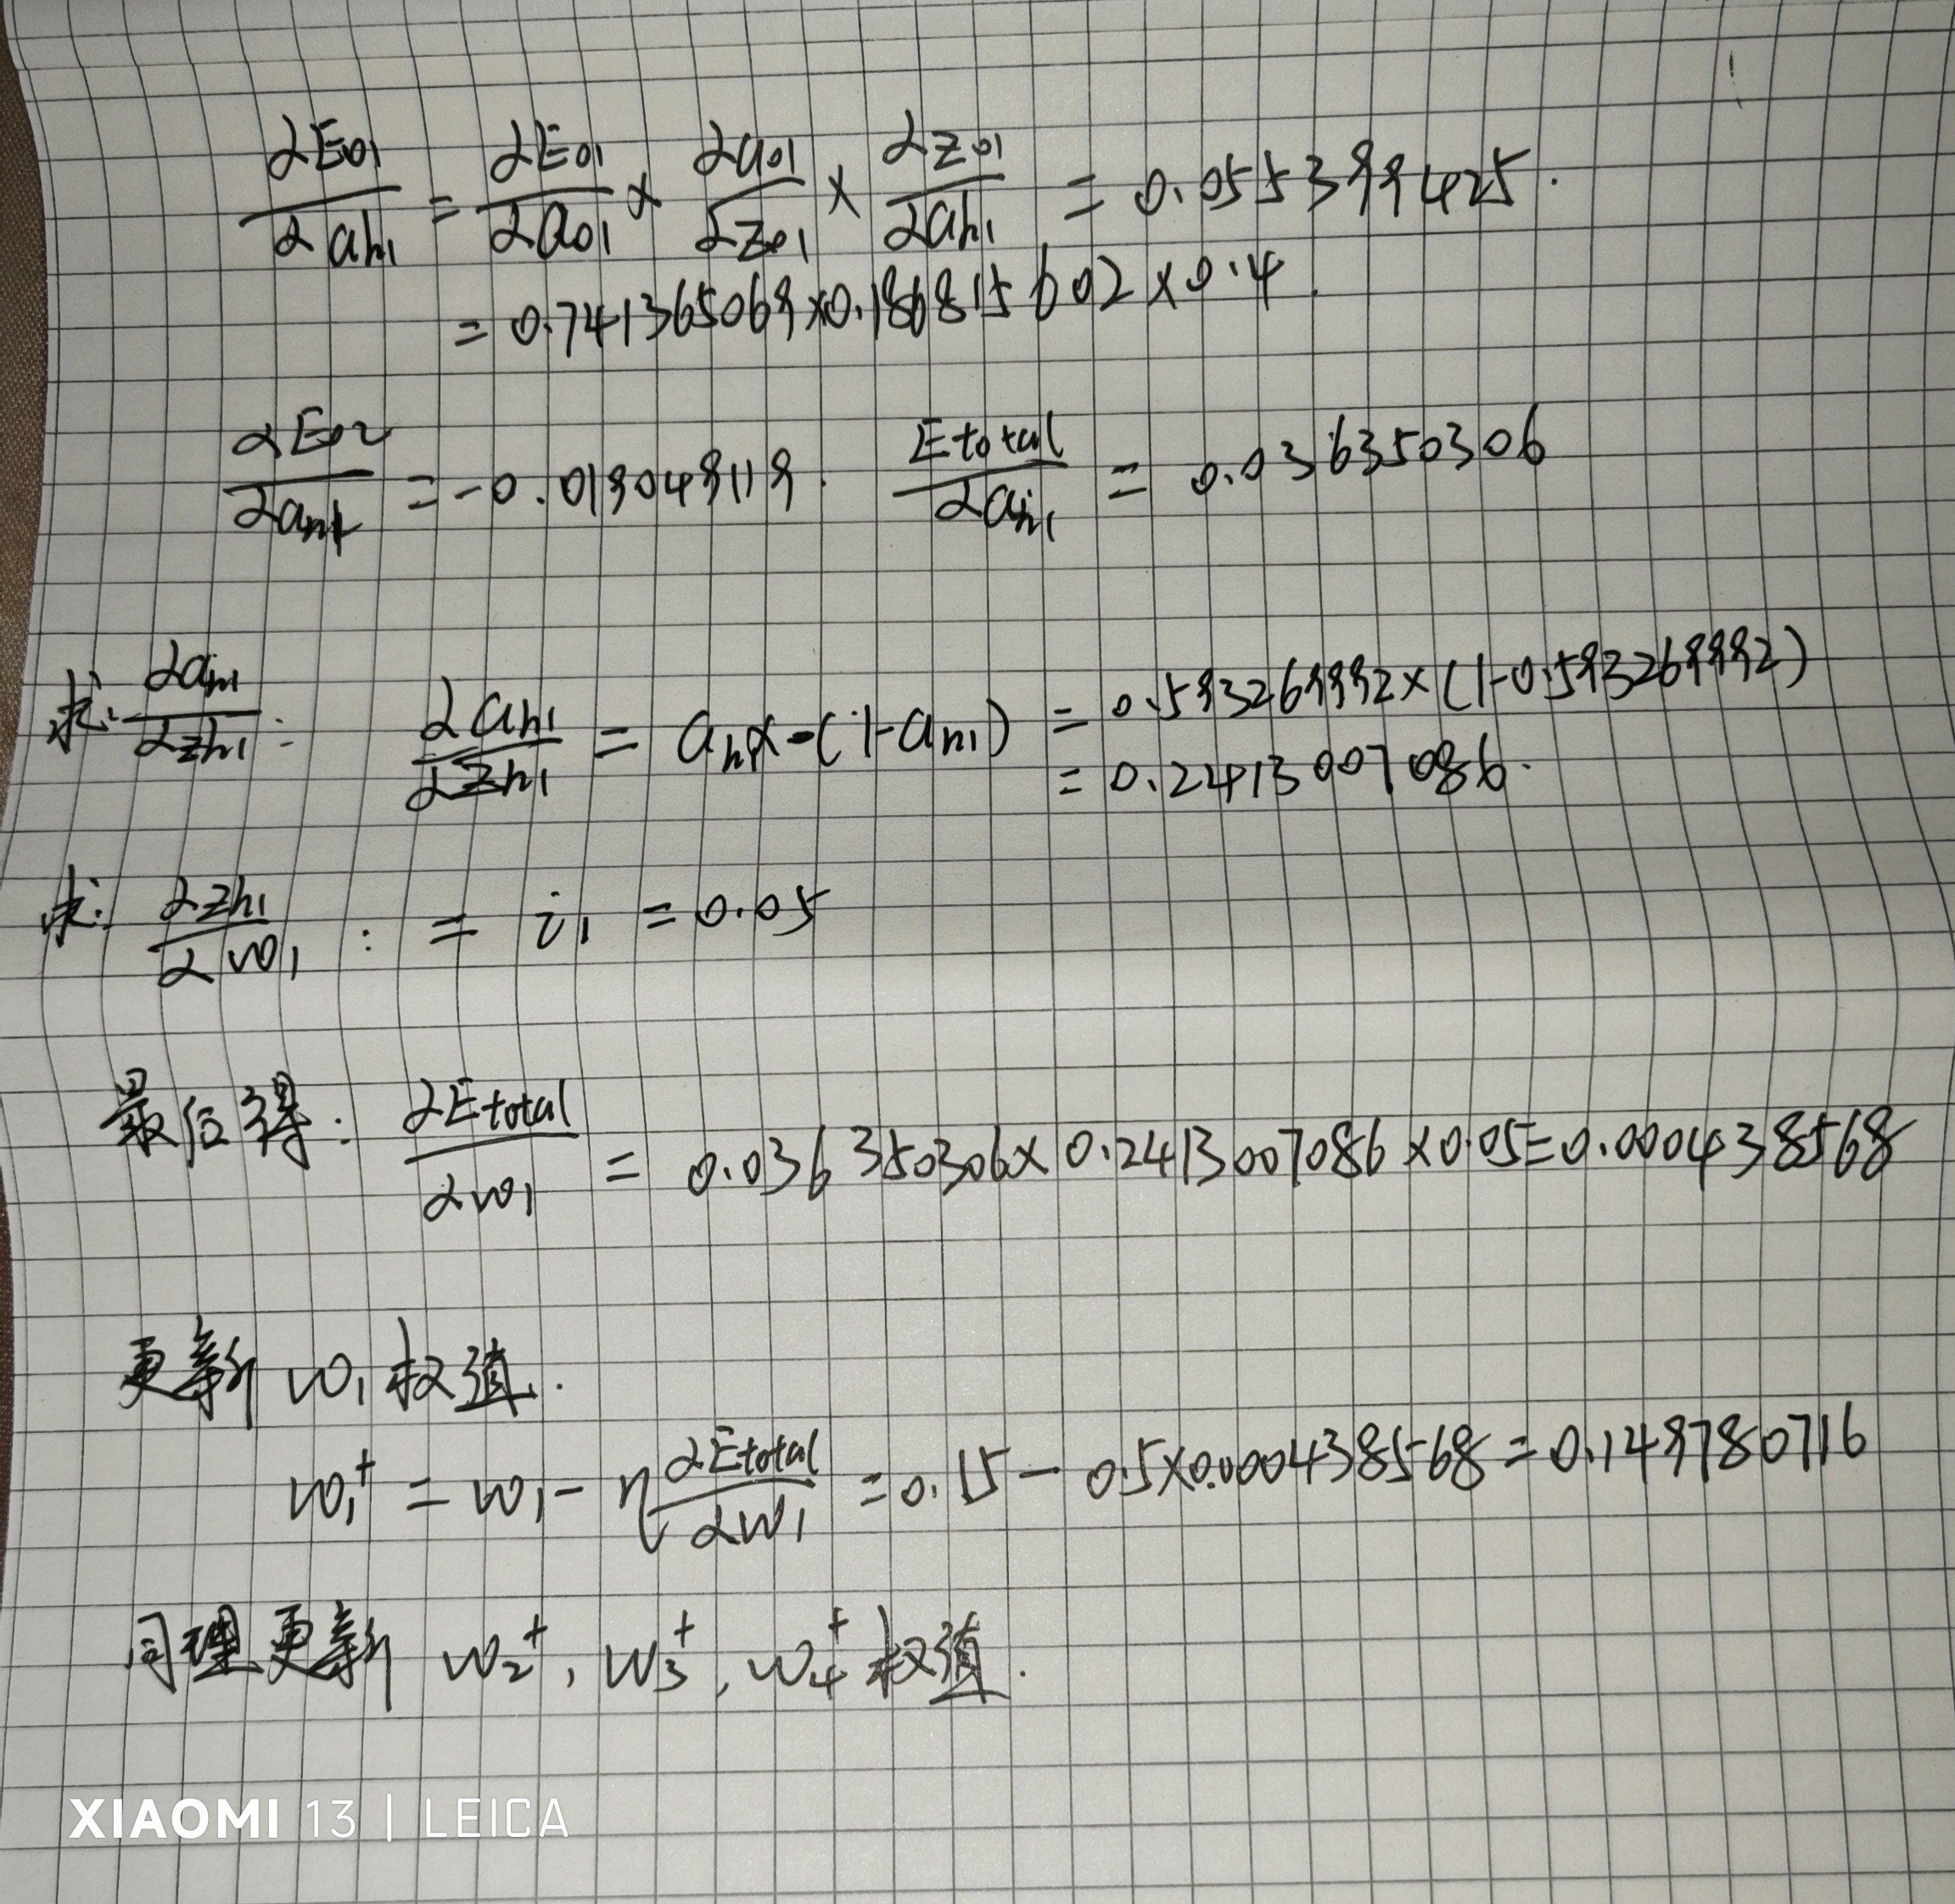 ∂Eo1/∂ah1 = ∂Eo1/∂ao1 × ∂ao1/∂zo1 × ∂zo1/∂ah1 = 0.055399425.
= 0.741365069×0.186815602×0.4.
∂Eo2/∂ah1 = -0.019049119. Etotal/∂ah1 = 0.036350306
求: ∂ah1/∂zh1: ∂ah1/∂zh1 = ah1×-(1-ah1) = 0.593269992×(1-0.593269992)
= 0.2413007086.
求: ∂zh1/∂w1 : = i1 = 0.05
最后得: ∂Etotal/∂w1 = 0.036350306×0.2413007086×0.05=0.000438568
更新w1权值.
w1⁺ = w1 - η ∂Etotal/∂w1 = 0.15 - 0.5×0.000438568=0.149780716
同理更新 w2⁺, w3⁺, w4⁺权值.
XIAOMI 13 | LEICA